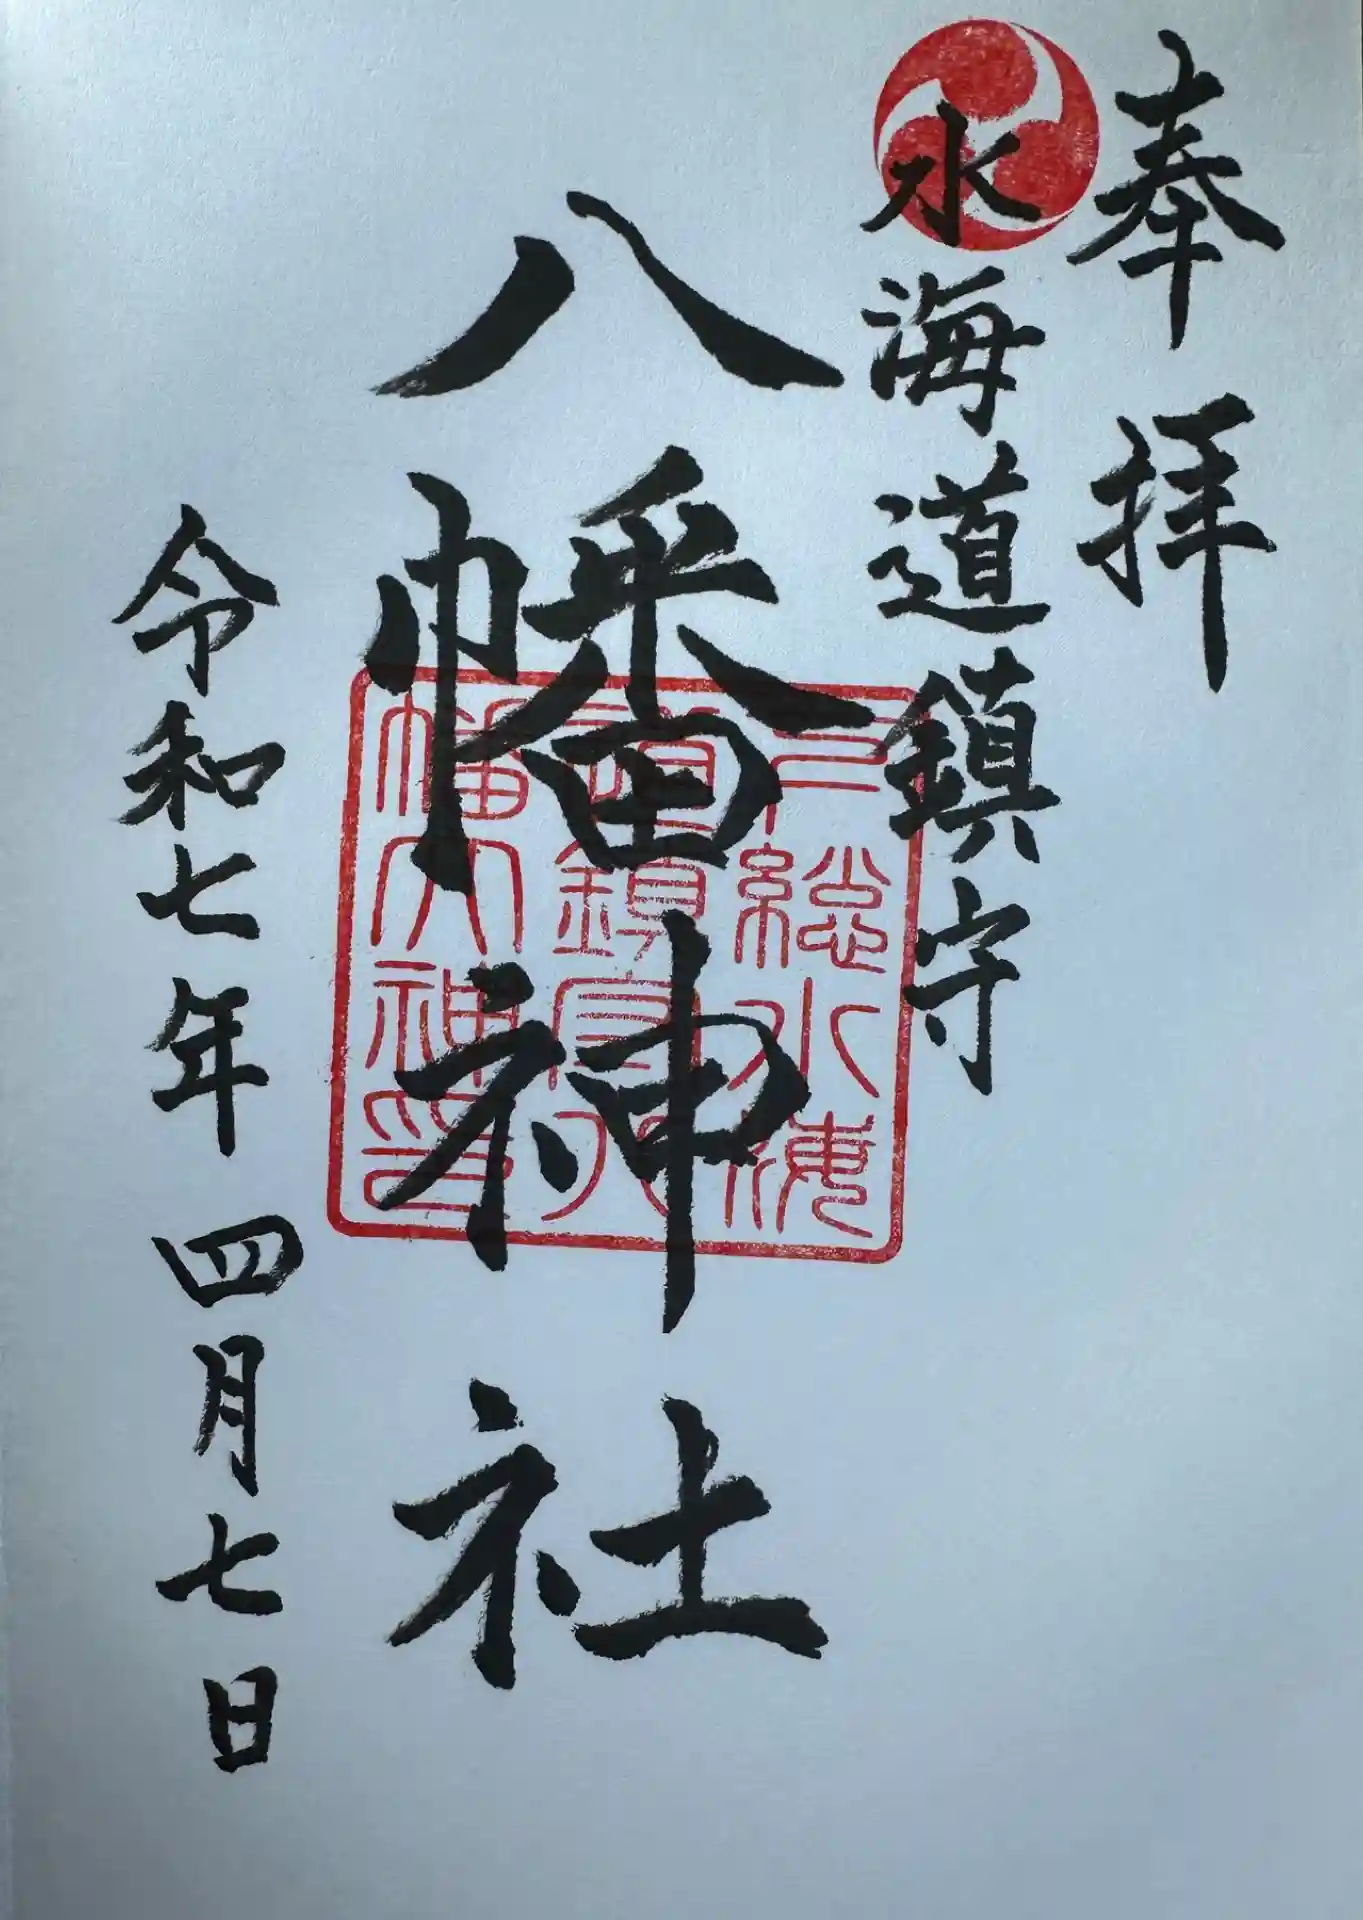 奉拝
水海道鎮守
八幡神社
令和七年 四月七日
下総水海
道鎮守八
幡大神印